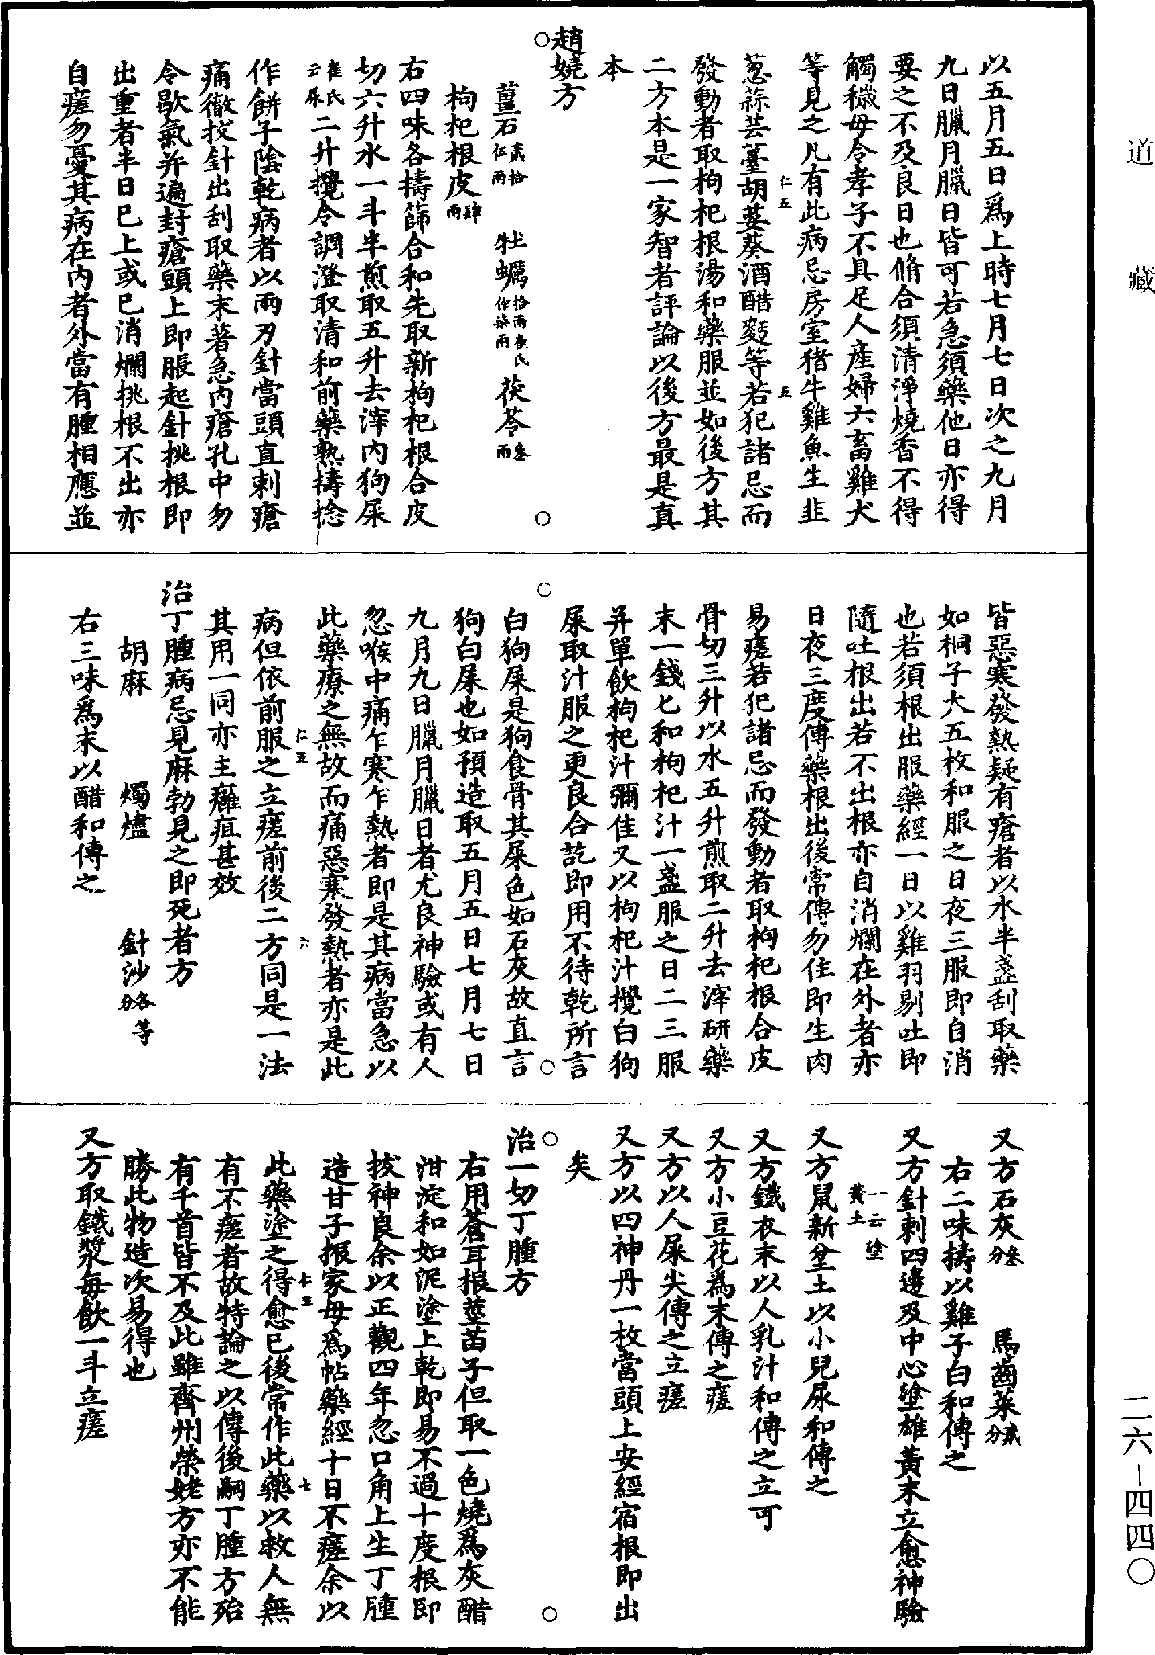 以五月五日為上時七月七日次之九月
九日臘月臘日皆可若急須藥他日亦得
要之不及良日也脩合須清淨燒香不得
觸穢毋令孝子不具足人產婦六畜雞犬
等見之凡有此病忌房室猪牛雞魚生韭
仁五
五
蔥蒜芸薹胡荽葵酒醋麪等若犯諸忌而
發動者取枸杞根湯和藥服並如後方其
二方本是一家智者評論以後方最是真
本
趙嬈方
薑石貳拾伍兩 牡蠣拾兩崔氏作柒兩 茯苓叁兩
枸杞根皮肆兩
右四味各擣篩合和先取新枸杞根合皮
切六升水一斗半煎取五升去滓內狗屎
崔氏云尿二升攪令調澄取清和前藥熟擣捻
作餅子陰乾病者以兩刃針當頭直刺瘡
痛徹拔針出刮取藥末著急內瘡孔中勿
令歇氣并遍封瘡頭上即脹起針挑根即
出重者半日已上或已消爛挑根不出亦
自瘥勿憂其病在內者外當有腫相應並
皆惡寒發熱疑有瘡者以水半盞刮取藥
如桐子大五枚和服之日夜三服即自消
也若須根出服藥經一日以雞羽剔吐即
隨吐根出若不出根亦自消爛在外者亦
日夜三度傅藥根出後常傅勿住即生肉
易瘥若犯諸忌而發動者取枸杞根合皮
骨切三升以水五升煎取二升去滓研藥
末一錢匕和枸杞汁一盞服之日二三服
并單飲枸杞汁彌佳又以枸杞汁攪白狗
屎取汁服之更良合訖即用不待乾所言
白狗屎是狗食骨其屎色如石灰故直言
狗白屎也如預造取五月五日七月七日
九月九日臘月臘日者尤良神驗或有人
忽喉中痛乍寒乍熱者即是其病當急以
此藥療之無故而痛惡寒發熱者亦是此
仁五
六
病但依前服之立瘥前後二方同是一法
其用一同亦主癰疽甚效
治丁腫病忌見麻勃見之即死者方
胡麻 燭燼 針沙各等分
右三味為末以醋和傅之
又方石灰叁分 馬齒菜貳分
右二味擣以雞子白和傅之
又方針刺四邊及中心塗雄黃末立愈神驗
一云塗黃土
又方鼠新坌土以小兒尿和傅之
又方鐵衣末以人乳汁和傅之立可
又方小豆花為末傅之瘥
又方以人屎尖傅之立瘥
又方以四神丹一枚當頭上安經宿根即出
矣
治一切丁腫方
右用蒼耳根莖苗子但取一色燒為灰醋
泔淀和如泥塗上乾即易不過十度根即
拔神良余以正觀四年忽口角上生丁腫
造甘子振家母為帖藥經十日不瘥余以
七五
七
此藥塗之得愈已後常作此藥以救人無
有不瘥者故特論之以傳後嗣丁腫方殆
有千首皆不及此雖齊州榮姥方亦不能
勝此物造次易得也
又方取鐵漿每飲一斗立瘥
道藏
二六-四四〇